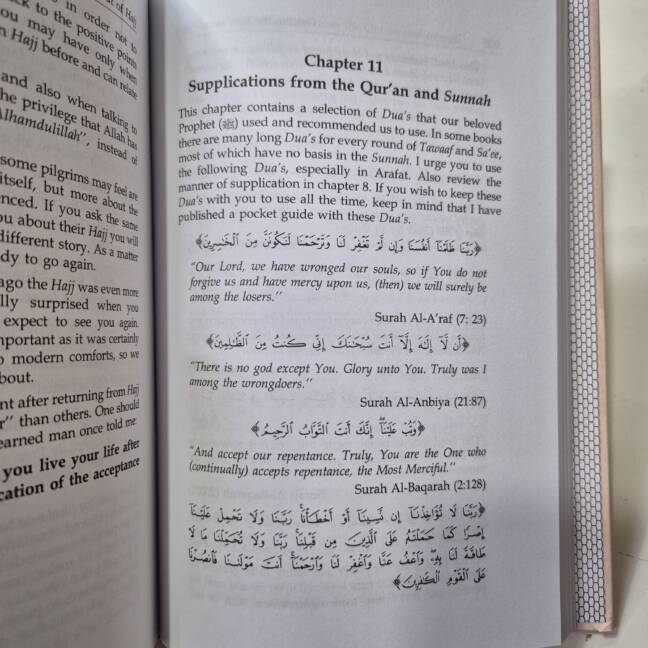 of Hajj
in order not to
back to the positive points
you may have only when
Hajj before and can relate
and also when talking to
the privilege that Allah has
Alhamdulillah", instead of
some pilgrims may feel are
itself, but more about the
enced. If you ask the same
you about their Hajj you will
different story. As a matter
dy to go again.
ago the Hajj was even more
lly surprised when you
expect to see you again.
mportant as it was certainly
modern comforts, so we
bout.
nt after returning from Hajj
r" than others. One should
earned man once told me:
you live your life after
cation of the acceptance
Chapter 11
Supplications from the Qur'an and Sunnah
This chapter contains a selection of Dua's that our beloved
Prophet (ﷺ) used and recommended us to use. In some books
there are many long Dua's for every round of Tawaaf and Sa'ee,
most of which have no basis in the Sunnah. I urge you to use
the following Dua's, especially in Arafat. Also review the
manner of supplication in chapter 8. If you wish to keep these
Dua's with you to use all the time, keep in mind that I have
published a pocket guide with these Dua's.
﴿رَبَّنَا ظَلَمْنَآ أَنفُسَنَا وَإِن لَّمْ تَغْفِرْ لَنَا وَتَرْحَمْنَا لَنَكُونَنَّ مِنَ ٱلْخَٰسِرِينَ﴾
"Our Lord, we have wronged our souls, so if You do not
forgive us and have mercy upon us, (then) we will surely be
among the losers."
Surah Al-A'raf (7: 23)
﴿أَن لَّآ إِلَٰهَ إِلَّآ أَنتَ سُبْحَٰنَكَ إِنِّى كُنتُ مِنَ ٱلظَّٰلِمِينَ﴾
"There is no god except You. Glory unto You. Truly was I
among the wrongdoers."
Surah Al-Anbiya (21:87)
﴿وَتُبْ عَلَيْنَآ إِنَّكَ أَنتَ ٱلتَّوَّابُ ٱلرَّحِيمُ﴾
"And accept our repentance. Truly, You are the One who
(continually) accepts repentance, the Most Merciful."
Surah Al-Baqarah (2:128)
﴿رَبَّنَا لَا تُؤَاخِذْنَآ إِن نَّسِينَآ أَوْ أَخْطَأْنَا رَبَّنَا وَلَا تَحْمِلْ عَلَيْنَآ
إِصْرًا كَمَا حَمَلْتَهُۥ عَلَى ٱلَّذِينَ مِن قَبْلِنَا رَبَّنَا وَلَا تُحَمِّلْنَا مَا لَا
طَاقَةَ لَنَا بِهِۦ وَٱعْفُ عَنَّا وَٱغْفِرْ لَنَا وَٱرْحَمْنَآ أَنتَ مَوْلَىٰنَا فَٱنصُرْنَا
عَلَى ٱلْقَوْمِ ٱلْكَٰفِرِينَ﴾